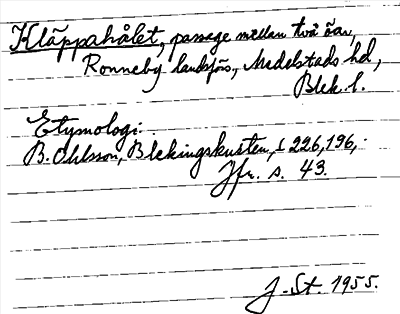 Kläppahålet, passage mellan två öar,
Ronneby landsförs, Medelstads hd,
Blek. l.
Etymologi:
B. Ohlsson, Blekingskusten, 1 226, 196,
Jfr. s. 43.
J. St. 1955.